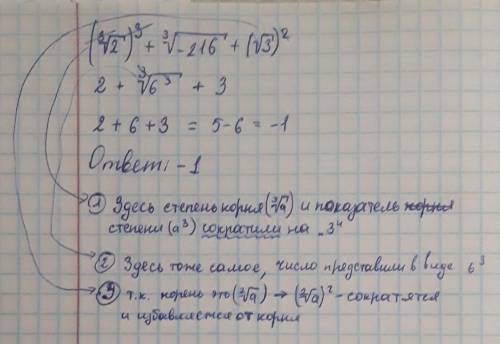 (∛2)³ + ∛-216 + (√3)²
2 + ∛6³ + 3
2 + 6 + 3 = 5-6 = -1
Ответ: -1
① Здесь степень корня (∛a) и показатель корня
степени (a³) сократили на „3“
② Здесь тоже самое, число представили в виде 6³
③ т.к. корень это (²√a) → (²√a)² - сократятся
и избавляется от корня